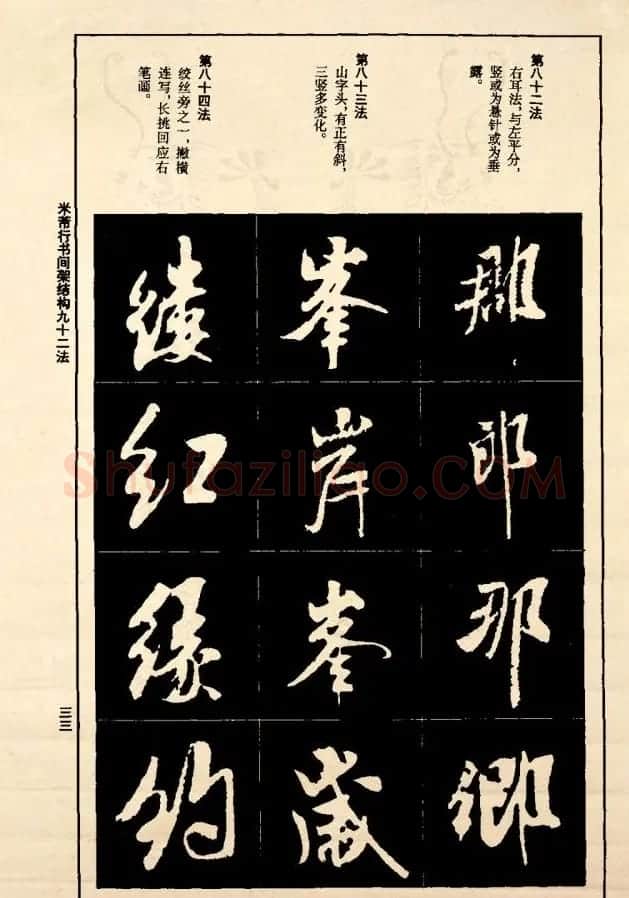 第八十二法
右耳法，与左平分，
竖或为悬针或为垂
露。
第八十三法
山字头，有正有斜，
三竖多变化。
第八十四法
绞丝旁之一，撇横
连写，长挑回应右
笔画。
郡郎那鄉
峯岸峯歲
红緣約
米芾行书间架结构九十二法
三三
Shufaziliao.COM